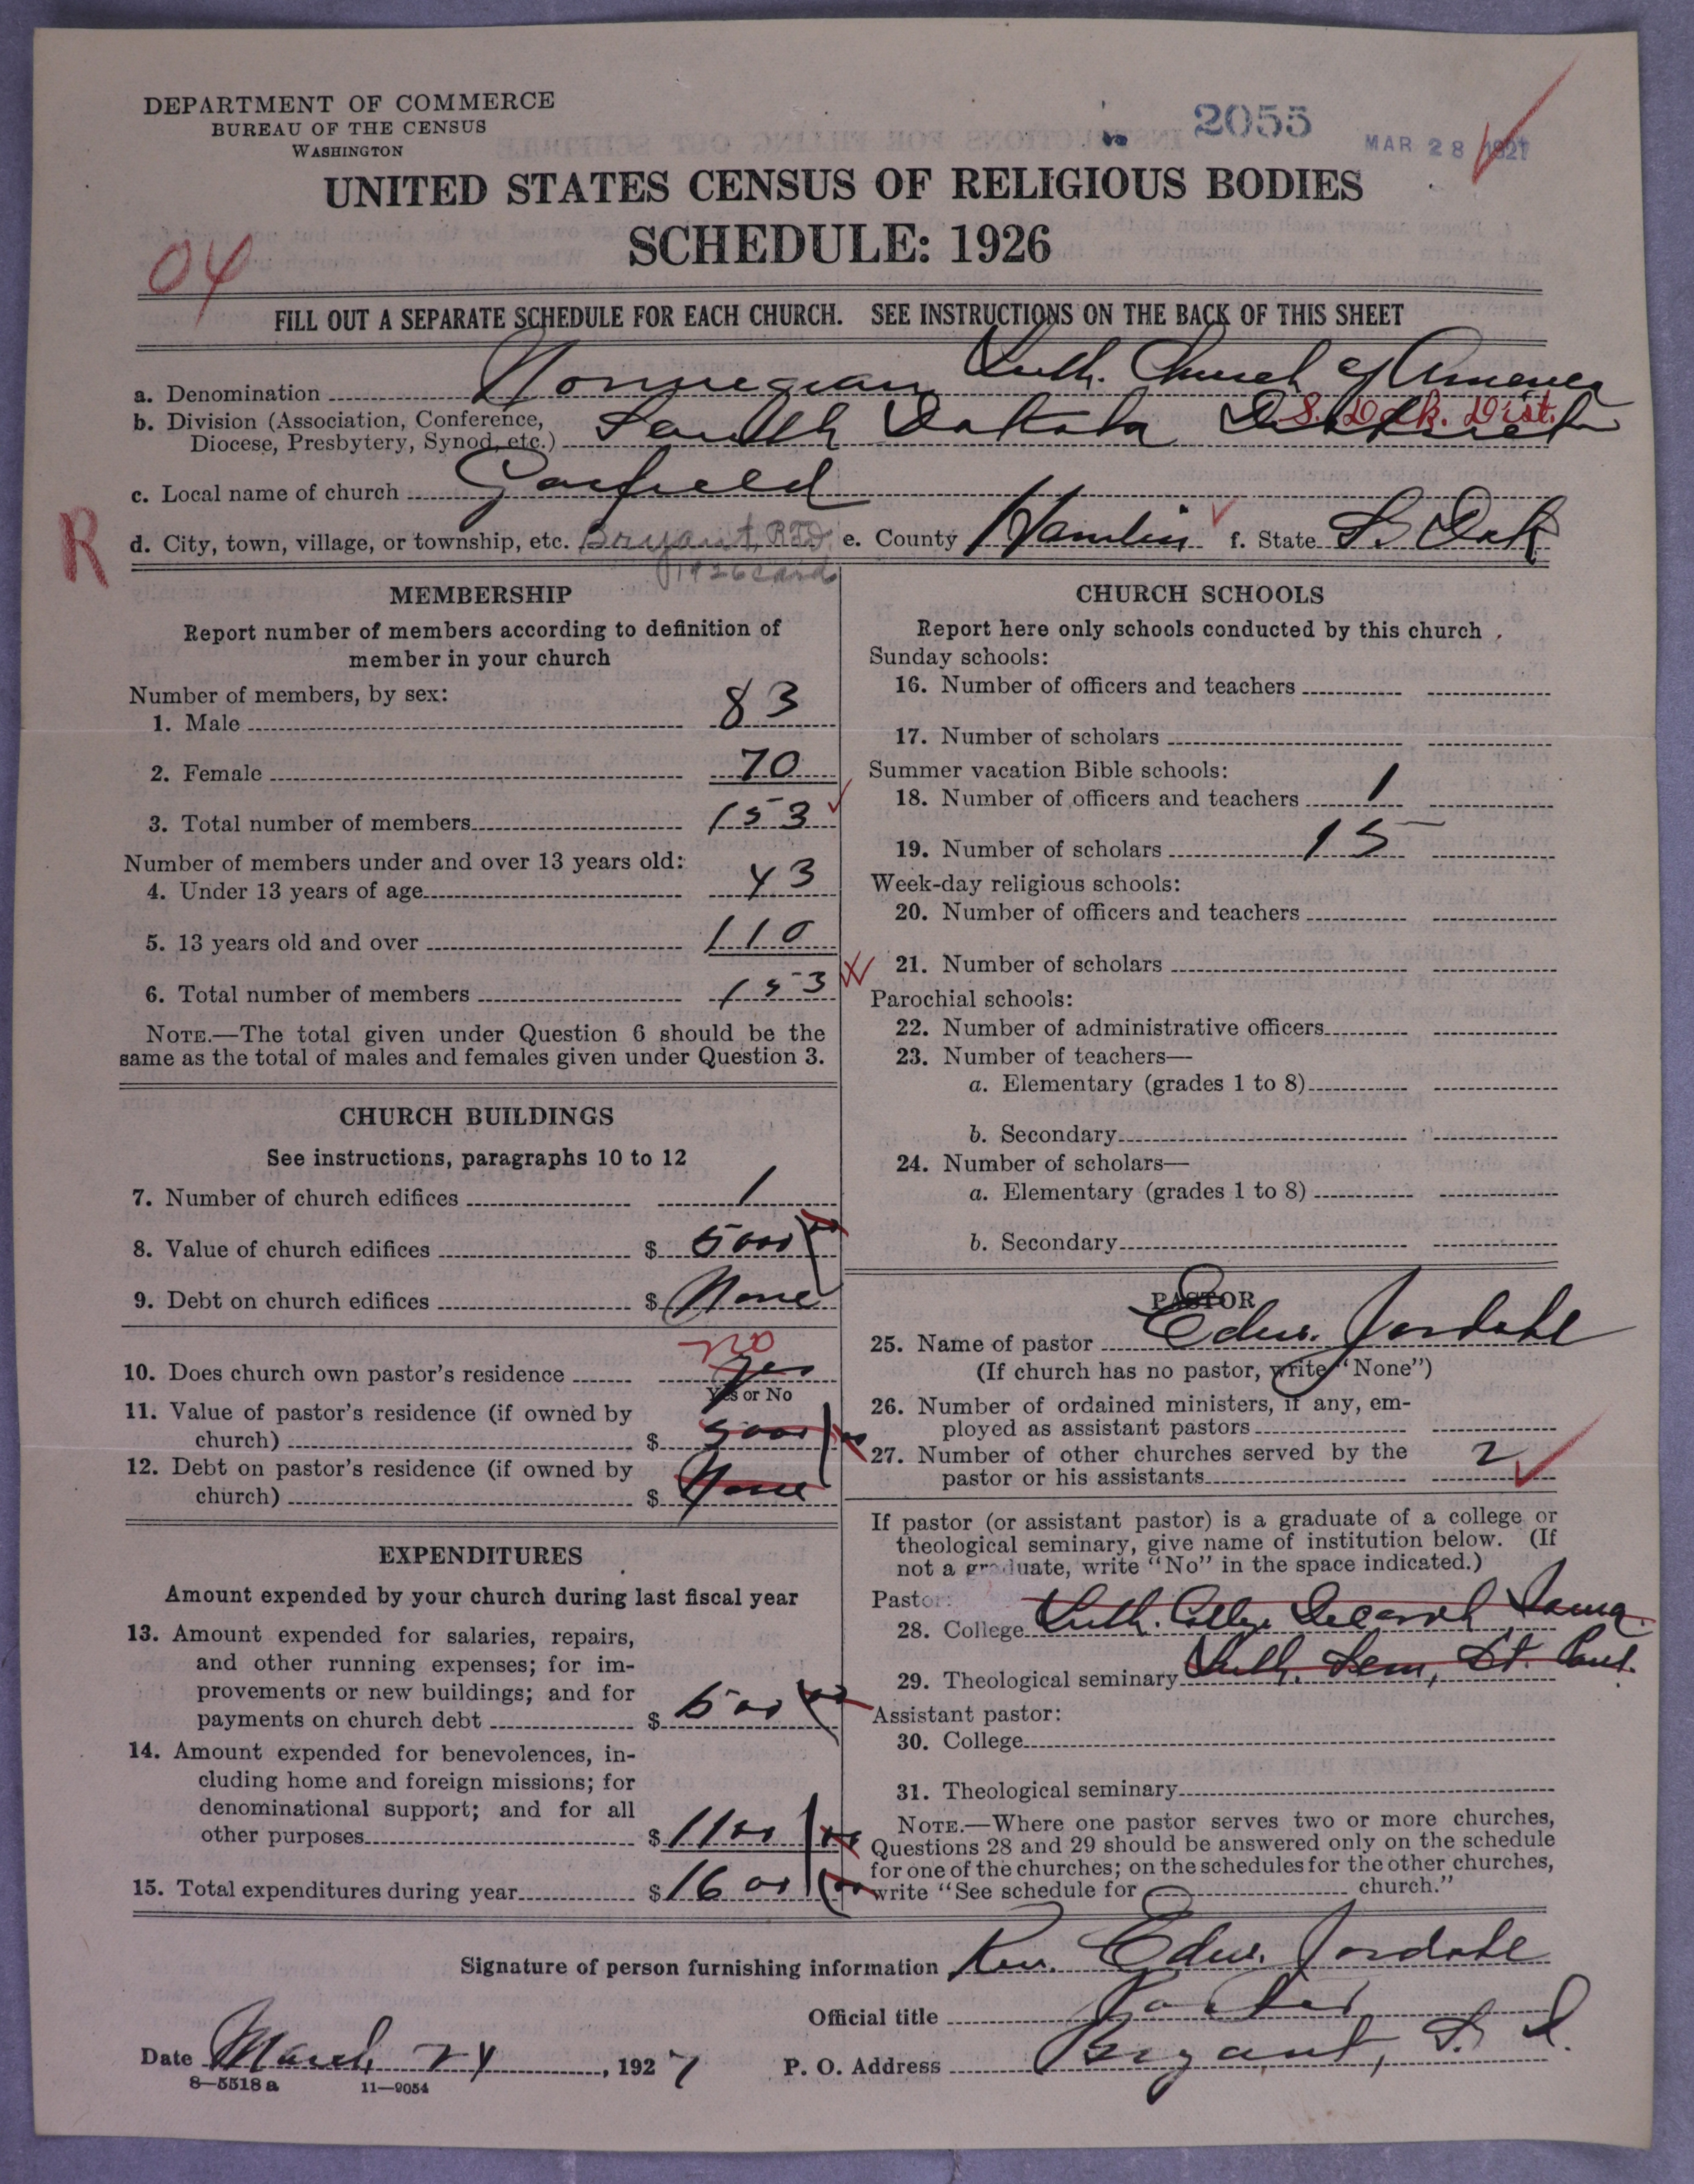 DEPARTMENT OF COMMERCE
BUREAU OF THE CENSUS
WASHINGTON
2055
MAR 28 1927
UNITED STATES CENSUS OF RELIGIOUS BODIES
SCHEDULE: 1926
04
FILL OUT A SEPARATE SCHEDULE FOR EACH CHURCH. SEE INSTRUCTIONS ON THE BACK OF THIS SHEET
a. Denomination Norwegian Luth. Church of America
b. Division (Association, Conference,
Diocese, Presbytery, Synod, etc.) South Dakota District S. Dak. Dist.
c. Local name of church Garfield
R
d. City, town, village, or township, etc. Bryant, RFD e. County Hamlin f. State S. Dak
1926 card
MEMBERSHIP
Report number of members according to definition of
member in your church
Number of members, by sex:
1. Male 83
2. Female 70
3. Total number of members 153
Number of members under and over 13 years old:
4. Under 13 years of age 43
5. 13 years old and over 110
6. Total number of members 153
NOTE.—The total given under Question 6 should be the
same as the total of males and females given under Question 3.
CHURCH BUILDINGS
See instructions, paragraphs 10 to 12
7. Number of church edifices 1
8. Value of church edifices $ 5000
9. Debt on church edifices $ None
10. Does church own pastor's residence yes no
Yes or No
11. Value of pastor's residence (if owned by
church) $ 5000
12. Debt on pastor's residence (if owned by
church) $ None
EXPENDITURES
Amount expended by your church during last fiscal year
13. Amount expended for salaries, repairs,
and other running expenses; for im-
provements or new buildings; and for
payments on church debt $ 500
14. Amount expended for benevolences, in-
cluding home and foreign missions; for
denominational support; and for all
other purposes $ 1100
15. Total expenditures during year $ 1600
CHURCH SCHOOLS
Report here only schools conducted by this church
Sunday schools:
16. Number of officers and teachers
17. Number of scholars
Summer vacation Bible schools:
18. Number of officers and teachers 1
19. Number of scholars 15
Week-day religious schools:
20. Number of officers and teachers
21. Number of scholars
Parochial schools:
22. Number of administrative officers
23. Number of teachers—
a. Elementary (grades 1 to 8)
b. Secondary
24. Number of scholars—
a. Elementary (grades 1 to 8)
b. Secondary
PASTOR
25. Name of pastor Edw. Jordahl
(If church has no pastor, write "None")
26. Number of ordained ministers, if any, em-
ployed as assistant pastors
27. Number of other churches served by the
pastor or his assistants 2
If pastor (or assistant pastor) is a graduate of a college or
theological seminary, give name of institution below. (If
not a graduate, write "No" in the space indicated.)
Pastor:
28. College Luth. College Decorah Iowa
29. Theological seminary Luth. Sem, St. Paul.
Assistant pastor:
30. College
31. Theological seminary
NOTE.—Where one pastor serves two or more churches,
Questions 28 and 29 should be answered only on the schedule
for one of the churches; on the schedules for the other churches,
write "See schedule for church."
Signature of person furnishing information Rev. Edw. Jordahl
Official title Pastor
Date March 24, 1927 P. O. Address Bryant, S. D.
8—5518 a 11—9054